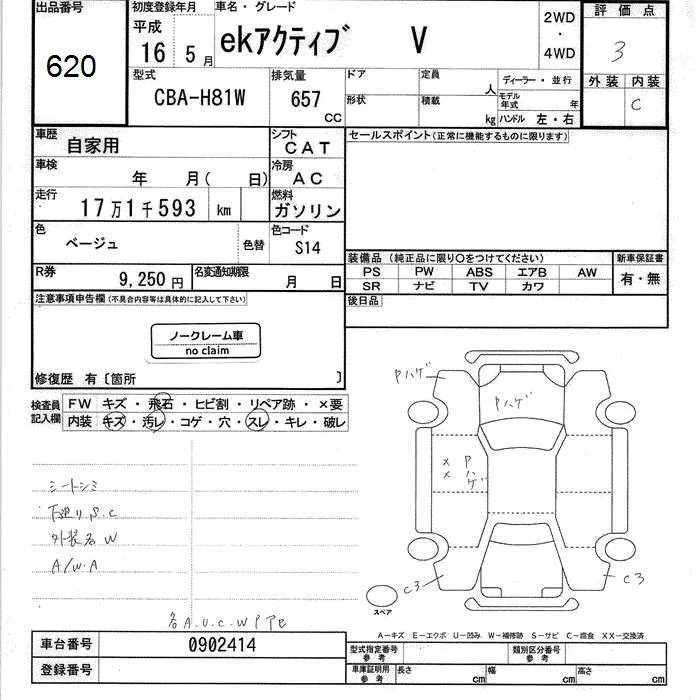 出品番号
620
初度登録年月
平成
16 5月
車名・グレード
ekアクティブ V
2WD
・
4WD
評価点
3
外装 内装
C
型式
CBA-H81W
排気量
657
CC
ドア
定員
人
形状
積載
kg
ディーラー・並行
モデル年式 年
ハンドル 左・右
車歴
自家用
シフト
CAT
車検
年 月( 日)
冷房
AC
走行
17万1千593 km
燃料
ガソリン
色
ベージュ
色替
色コード
S14
R券
9,250円
名変通知期限
月 日
セールスポイント(正常に機能するものに限ります)
装備品(純正品に限り○をつけてください)
新車保証書
PS PW ABS エアB AW
SR ナビ TV カワ
有・無
後日品
注意事項申告欄(不具合内容等は具体的に記入して下さい)
ノークレーム車
no claim
修復歴 有〔箇所 〕
検査員記入欄
FW キズ・飛石・ヒビ割・リペア跡・×要
内装 キズ・汚レ・コゲ・穴・スレ・キレ・破レ
シートシミ
下廻りS.C
外装各W
A/W.A
Pハゲ
Pハゲ
× ×
Pハゲ
C3
C3
スペア
各A.U.C.W
A-キズ E-エクボ U-凹み W-補修跡 S-サビ C-腐食 XX-交換済
車台番号
0902414
登録番号
型式指定番号
参考
類別区分番号
参考
車庫証明用
参考
長さ cm
幅 cm
高さ cm